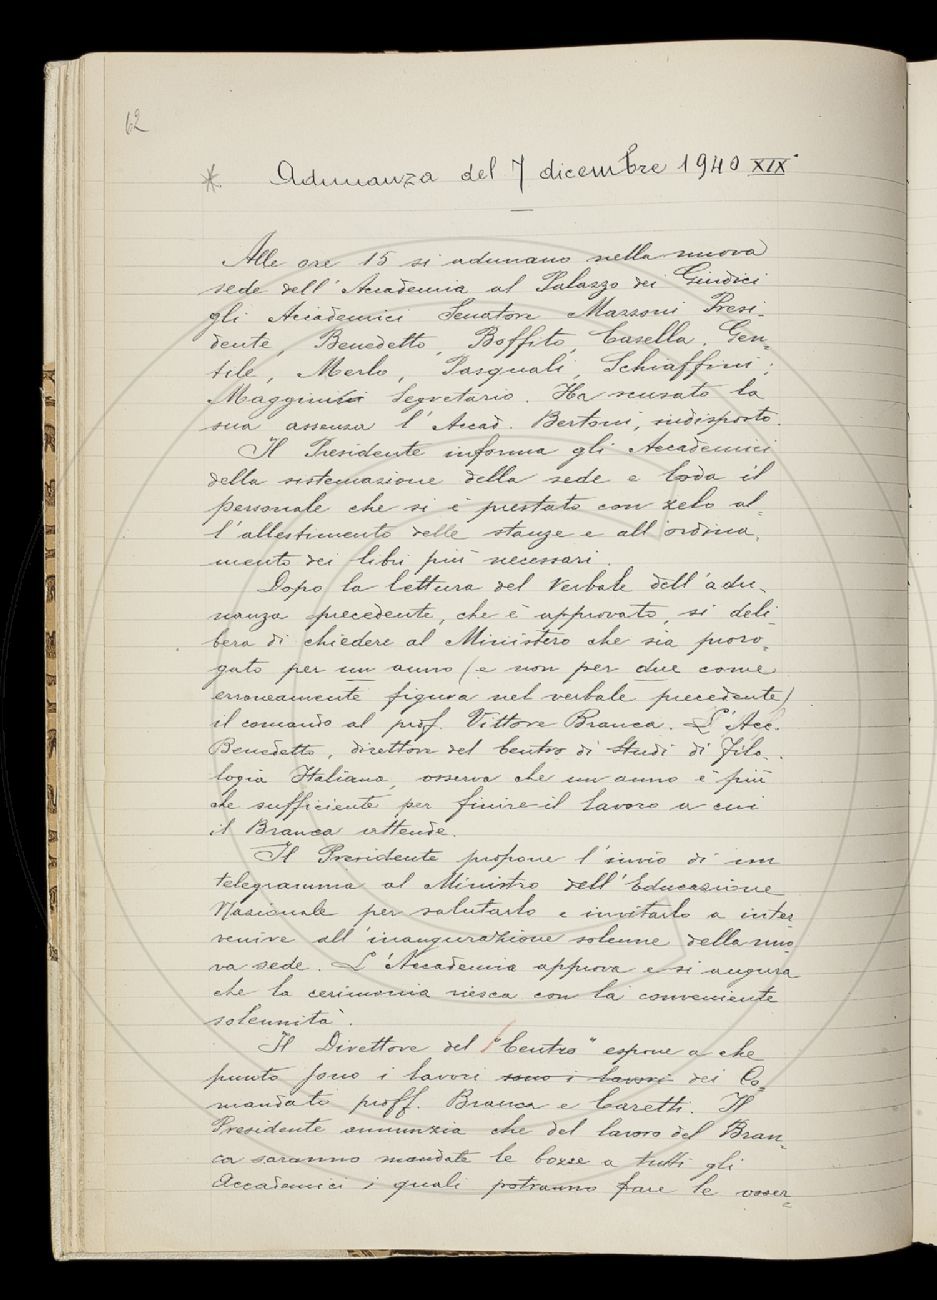 62
* Adunanza del 7 dicembre 1940 XIX°
Alle ore 15 si adunano nella nuova
sede dell'Accademia al Palazzo dei Giudici
gli Accademici Senatore Mazzoni Presi-
dente, Benedetto, Boffito, Casella, Gen-
tile, Merlo, Pasquali, Schiaffini;
Maggini Segretario. Ha scusato la
sua assenza l'Accad. Bertoni, indisposto.
Il Presidente informa gli Accademici
della sistemazione della sede e loda il
personale che si è prestato con zelo al-
l'allestimento delle stanze e all'ordina-
mento dei libri più necessari.
Dopo la lettura del Verbale dell'adu-
nanza precedente, che è approvato, si deli-
bera di chiedere al Ministero che sia proro-
gato per un anno (e non per due come
erroneamente figura nel verbale precedente)
il comando al prof. Vittore Branca. L'Acc.
Benedetto, direttore del Centro di Studi di Filo-
logia Italiana, osserva che un anno è più
che sufficiente per finire il lavoro a cui
il Branca attende.
Il Presidente propone l'invio di un
telegramma al Ministro dell'Educazione
Nazionale per salutarlo e invitarlo a inter-
venire all'inaugurazione solenne della nuo-
va sede. L'Accademia approva e si augura
che la cerimonia riesca con la conveniente
solennità.
Il Direttore del "Centro" espone a che
punto sono i lavori sono i lavori dei Co-
mandato proff. Branca e Caretti. Il
Presidente annunzia che del lavoro del Bran-
ca saranno mandate le bozze a tutti gli
Accademici i quali potranno fare le osser-